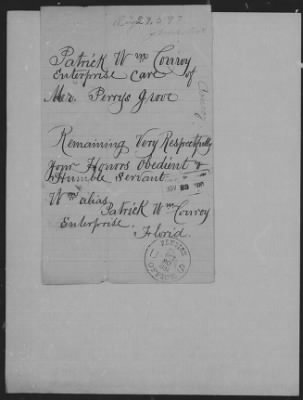 Patrick Wm Conroy
Enterprise care of
Mr. Perrys Grove
Conroy
Remaining Very Respectfully
Your Honors Obedient &
Humble Servant
Wm alias
Patrick Wm Conroy
Enterprise
Florid.
OFFICE